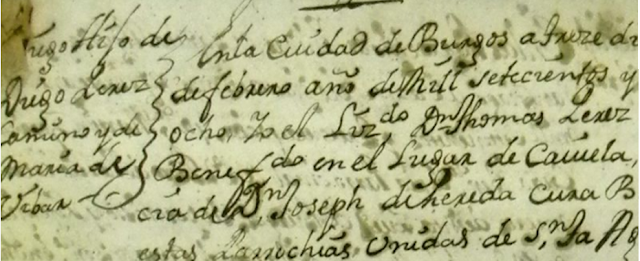 Diego Hijo de
Diego Perez
Camino y de
Maria de
Vibar
En la Ciudad de Burgos a treze di
de febrero año de Mill setecientos y
ocho, Yo el Liz.do Dn Thomas Perez
Benef.do en el Lugar de Cavuela,
cia de Dn, Joseph de hereda Cura B
estas Parrochias Unidas de S,n ta